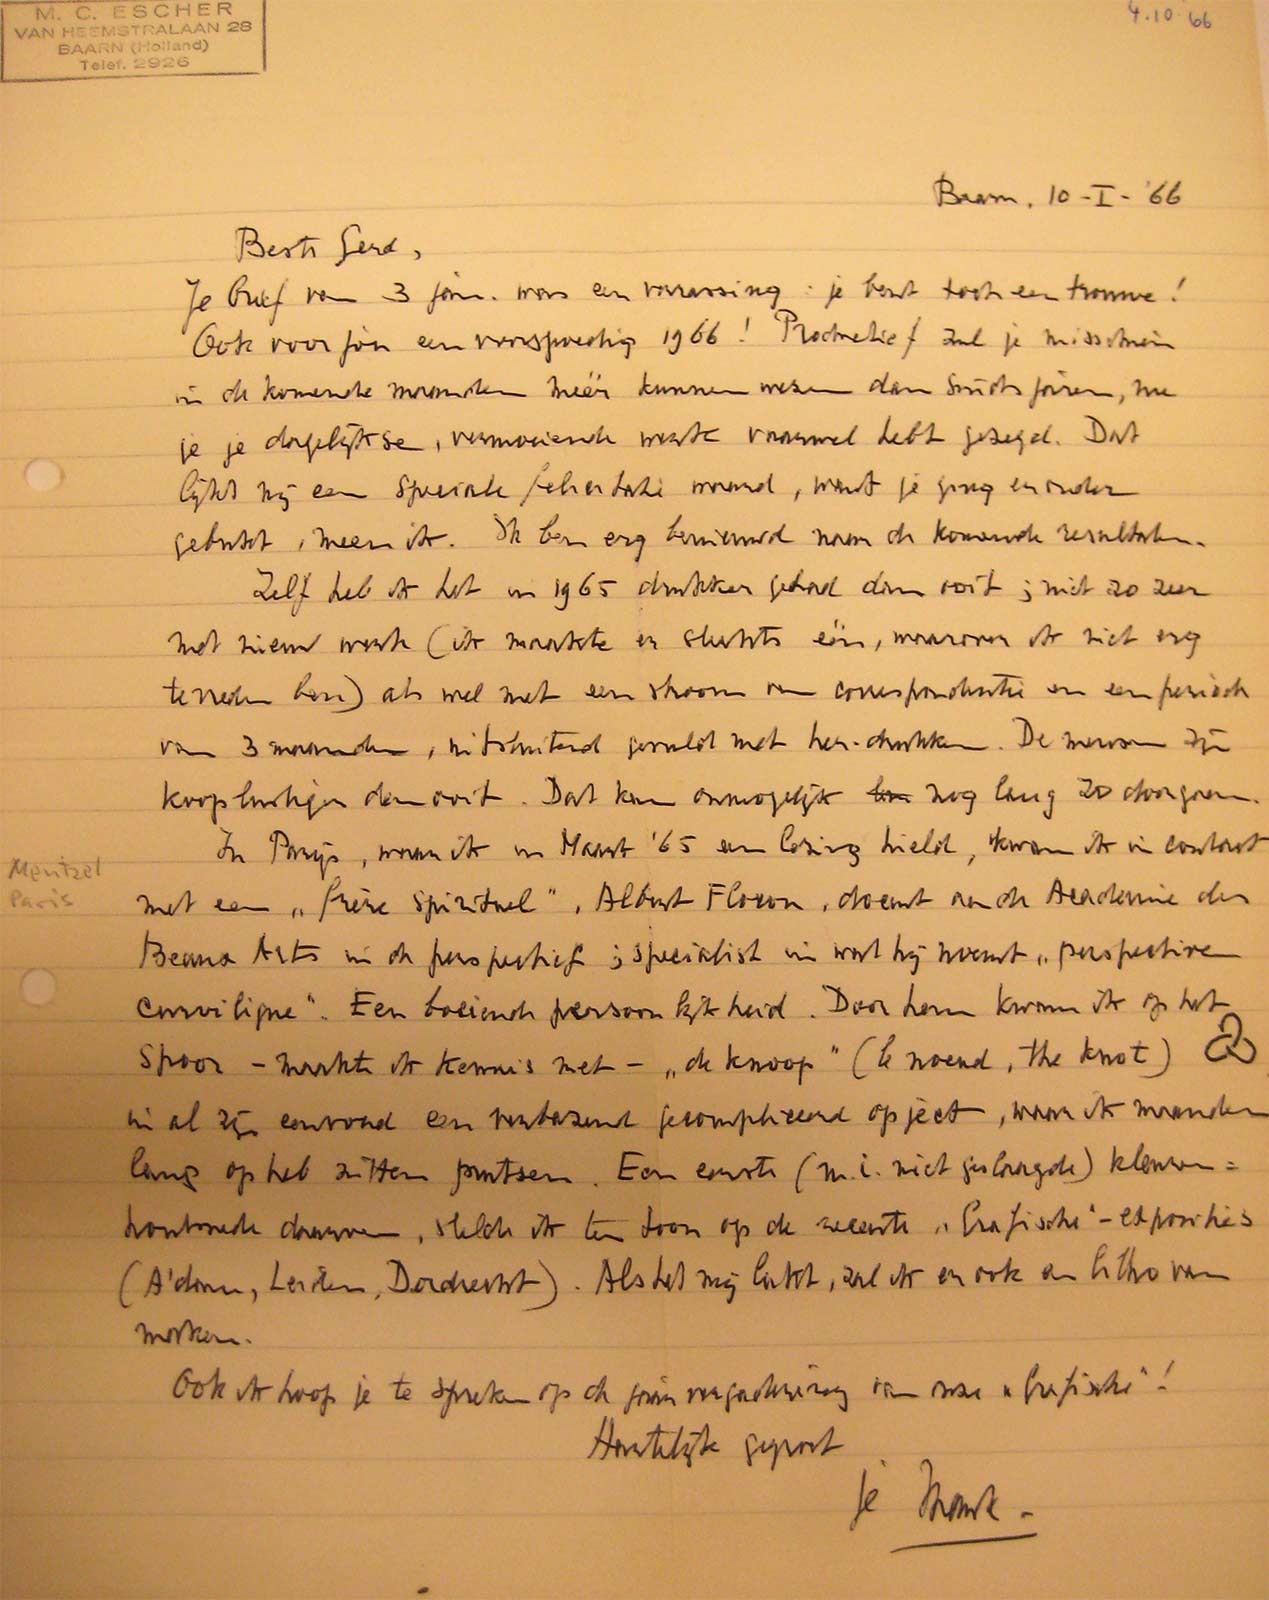 M. C. ESCHER
VAN HEEMSTRALAAN 28
BAARN (Holland)
Telef. 2926
4.10 '66
Baarn, 10-I-'66
Beste Gerd,
Je brief van 3 jan. was een verrassing: je bent toch een trouwe!
Ook voor jou een voorspoedig 1966! Productief zul je misschien
in de komende maanden méér kunnen wezen dan sinds jaren, nu
je je dagelijkse, vermoeiende werk vaarwel hebt gezegd. Dat
lijkt mij een speciale felicitatie waard, want je ging eronder
gebukt, meen ik. Ik ben erg benieuwd naar de komende resultaten.
Zelf heb ik het in 1965 drukker gehad dan ooit; niet zo zeer
met nieuw werk (ik maakte er slechts één, waarover ik niet erg
tevreden ben) als wel met een stroom van correspondentie en een periode
van 3 maanden, uitsluitend gevuld met her-drukken. De mensen zijn
kooplustiger dan ooit. Dat kan onmogelijk nog lang zo doorgaan.
In Parijs, waar ik in Maart '65 een lezing hield, kwam ik in contact
Mentzel
Paris
met een „frère spirituel", Albert Flocon, docent aan de Academie des
Beaux Arts in de perspectief; specialist in wat hij noemt „perspective
curviligne". Een boeiende persoonlijkheid. Door hem kwam ik op het
spoor - maakte ik kennis met - „de knoop" (le noeud, the knot)
in al zijn eenvoud een verbazend gecompliceerd opject, waar ik maanden
lang op heb zitten peutsen. Een eerste (m.i. niet geslaagde) kleuren=
houtsnede daarvan, stelde ik ten toon op de recente „Grafische"-exposities
(A'dam, Leiden, Dordrecht). Als het mij lukt, zal ik er ook een litho van
maken.
Ook ik hoop je te spreken op de jaarvergadering van onze „Grafische"!
Hartelijk gegroet
je Mauk.